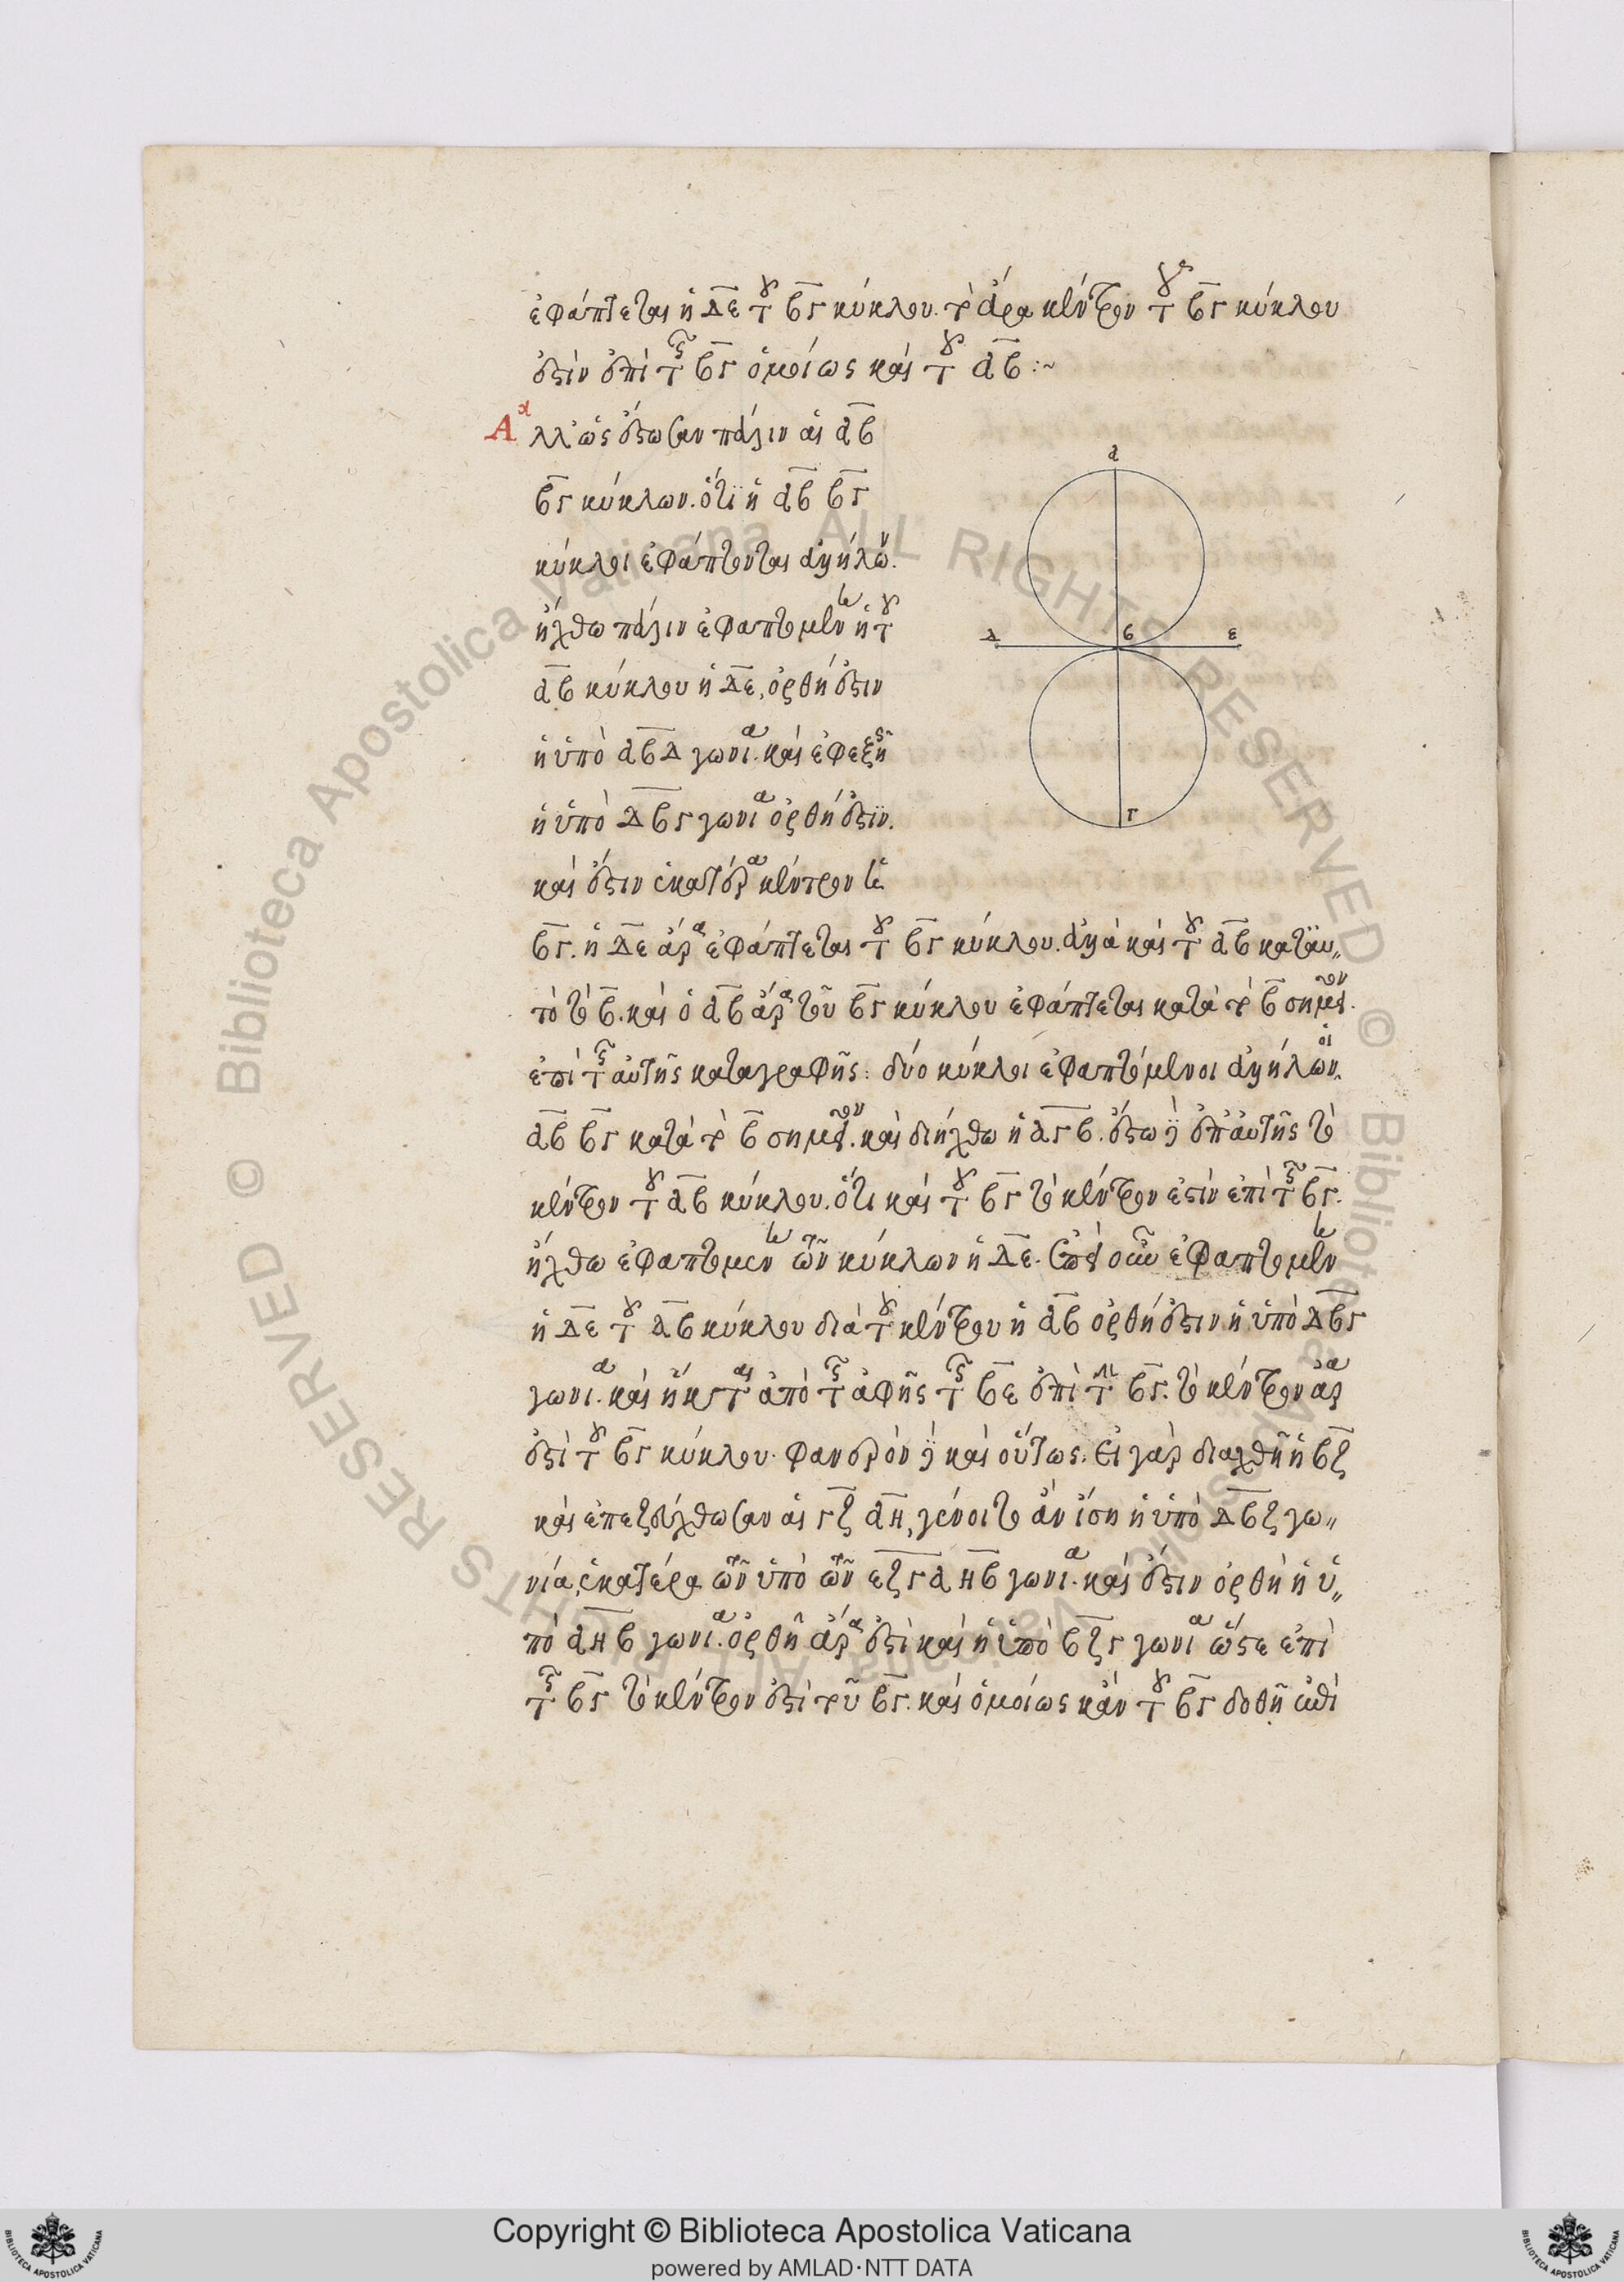 ἐφάπτεται ἡ ΔΕ τοῦ ΒΓ κύκλου. τὸ ἄρα κέντρον τοῦ ΒΓ κύκλου
ἐστὶν ἐπὶ τῆς ΒΓ ὁμοίως καὶ τοῦ ΑΒ :~
Αλλ' ὡς ἔστωσαν πάλιν αἱ ΑΒ
ΒΓ κύκλων. ὅτι ἡ ΑΒ ΒΓ
κύκλοι ἐφάπτονται ἀλλήλων.
ἤχθω πάλιν ἐφαπτομένη ἡ τοῦ
ΑΒ κύκλου ἡ ΔΕ, ὀρθή ἐστιν
ἡ ὑπὸ ΑΒΔ γωνία. καὶ ἐφεξῆς
ἡ ὑπὸ ΔΒΓ γωνία ὀρθή ἐστιν.
καὶ ἔστιν ἑκατέρα κέντρον
ΒΓ. ἡ ΔΕ ἄρα ἐφάπτεται τοῦ ΒΓ κύκλου. ἀλλὰ καὶ τοῦ ΑΒ κατὰ αὐ"
τὸ τὸ Β. καὶ ὁ ΑΒ ἄρα τοῦ ΒΓ κύκλου ἐφάπτεται κατὰ τὸ Β σημεῖον.
ἐπὶ τῆς αὐτῆς καταγραφῆς: δύο κύκλοι ἐφαπτόμενοι ἀλλήλων οἱ
ΑΒ ΒΓ κατὰ τὸ Β σημεῖον. καὶ διήχθω ἡ ΑΓΒ. ἔστω δὲ ἐπ' αὐτῆς τὸ
κέντρον τοῦ ΑΒ κύκλου. ὅτι καὶ τοῦ ΒΓ τὸ κέντρον ἐστὶν ἐπὶ τῆς ΒΓ.
ἤχθω ἐφαπτομένη τῶν κύκλων ἡ ΔΕ. ἐπεὶ οὖν ἐφαπτομένη
ἡ ΔΕ τοῦ ΑΒ κύκλου διὰ τοῦ κέντρου ἡ ΑΒ ὀρθή ἐστιν ἡ ὑπὸ ΔΒΓ
γωνία. καὶ ἦκται ἀπὸ τῆς ἁφῆς τῆς ΒΕ ἐπὶ τὴν ΒΓ. τὸ κέντρον ἄρα
ἐστὶ τοῦ ΒΓ κύκλου. φανερὸν δὲ καὶ οὕτως. Εἰ γὰρ διαχθῆ ἡ ΒΖ
καὶ ἐπεζεύχθωσαν αἱ ΓΖ ΑΗ, γένοιτο ἂν ἴση ἡ ὑπὸ ΔΒΖ γω"
νία, ἑκατέρα τῶν ὑπὸ τῶν ΕΖΓ ΑΗΒ γωνία. καὶ ἔστιν ὀρθὴ ἡ ὑ"
πὸ ΑΗΒ γωνία. ὀρθὴ ἄρα ἐστὶ καὶ ἡ ὑπὸ ΒΖΓ γωνία ὥστε ἐπὶ
τῆς ΒΓ τὸ κέντρον ἐστὶ τοῦ ΒΓ. καὶ ὁμοίως κἂν τοῦ ΒΓ δοθῆ ἐπὶ
Α
Δ Β Ε
Γ
© Biblioteca Apostolica Vaticana ALL RIGHTS RESERVED
Copyright © Biblioteca Apostolica Vaticana
powered by AMLAD·NTT DATA